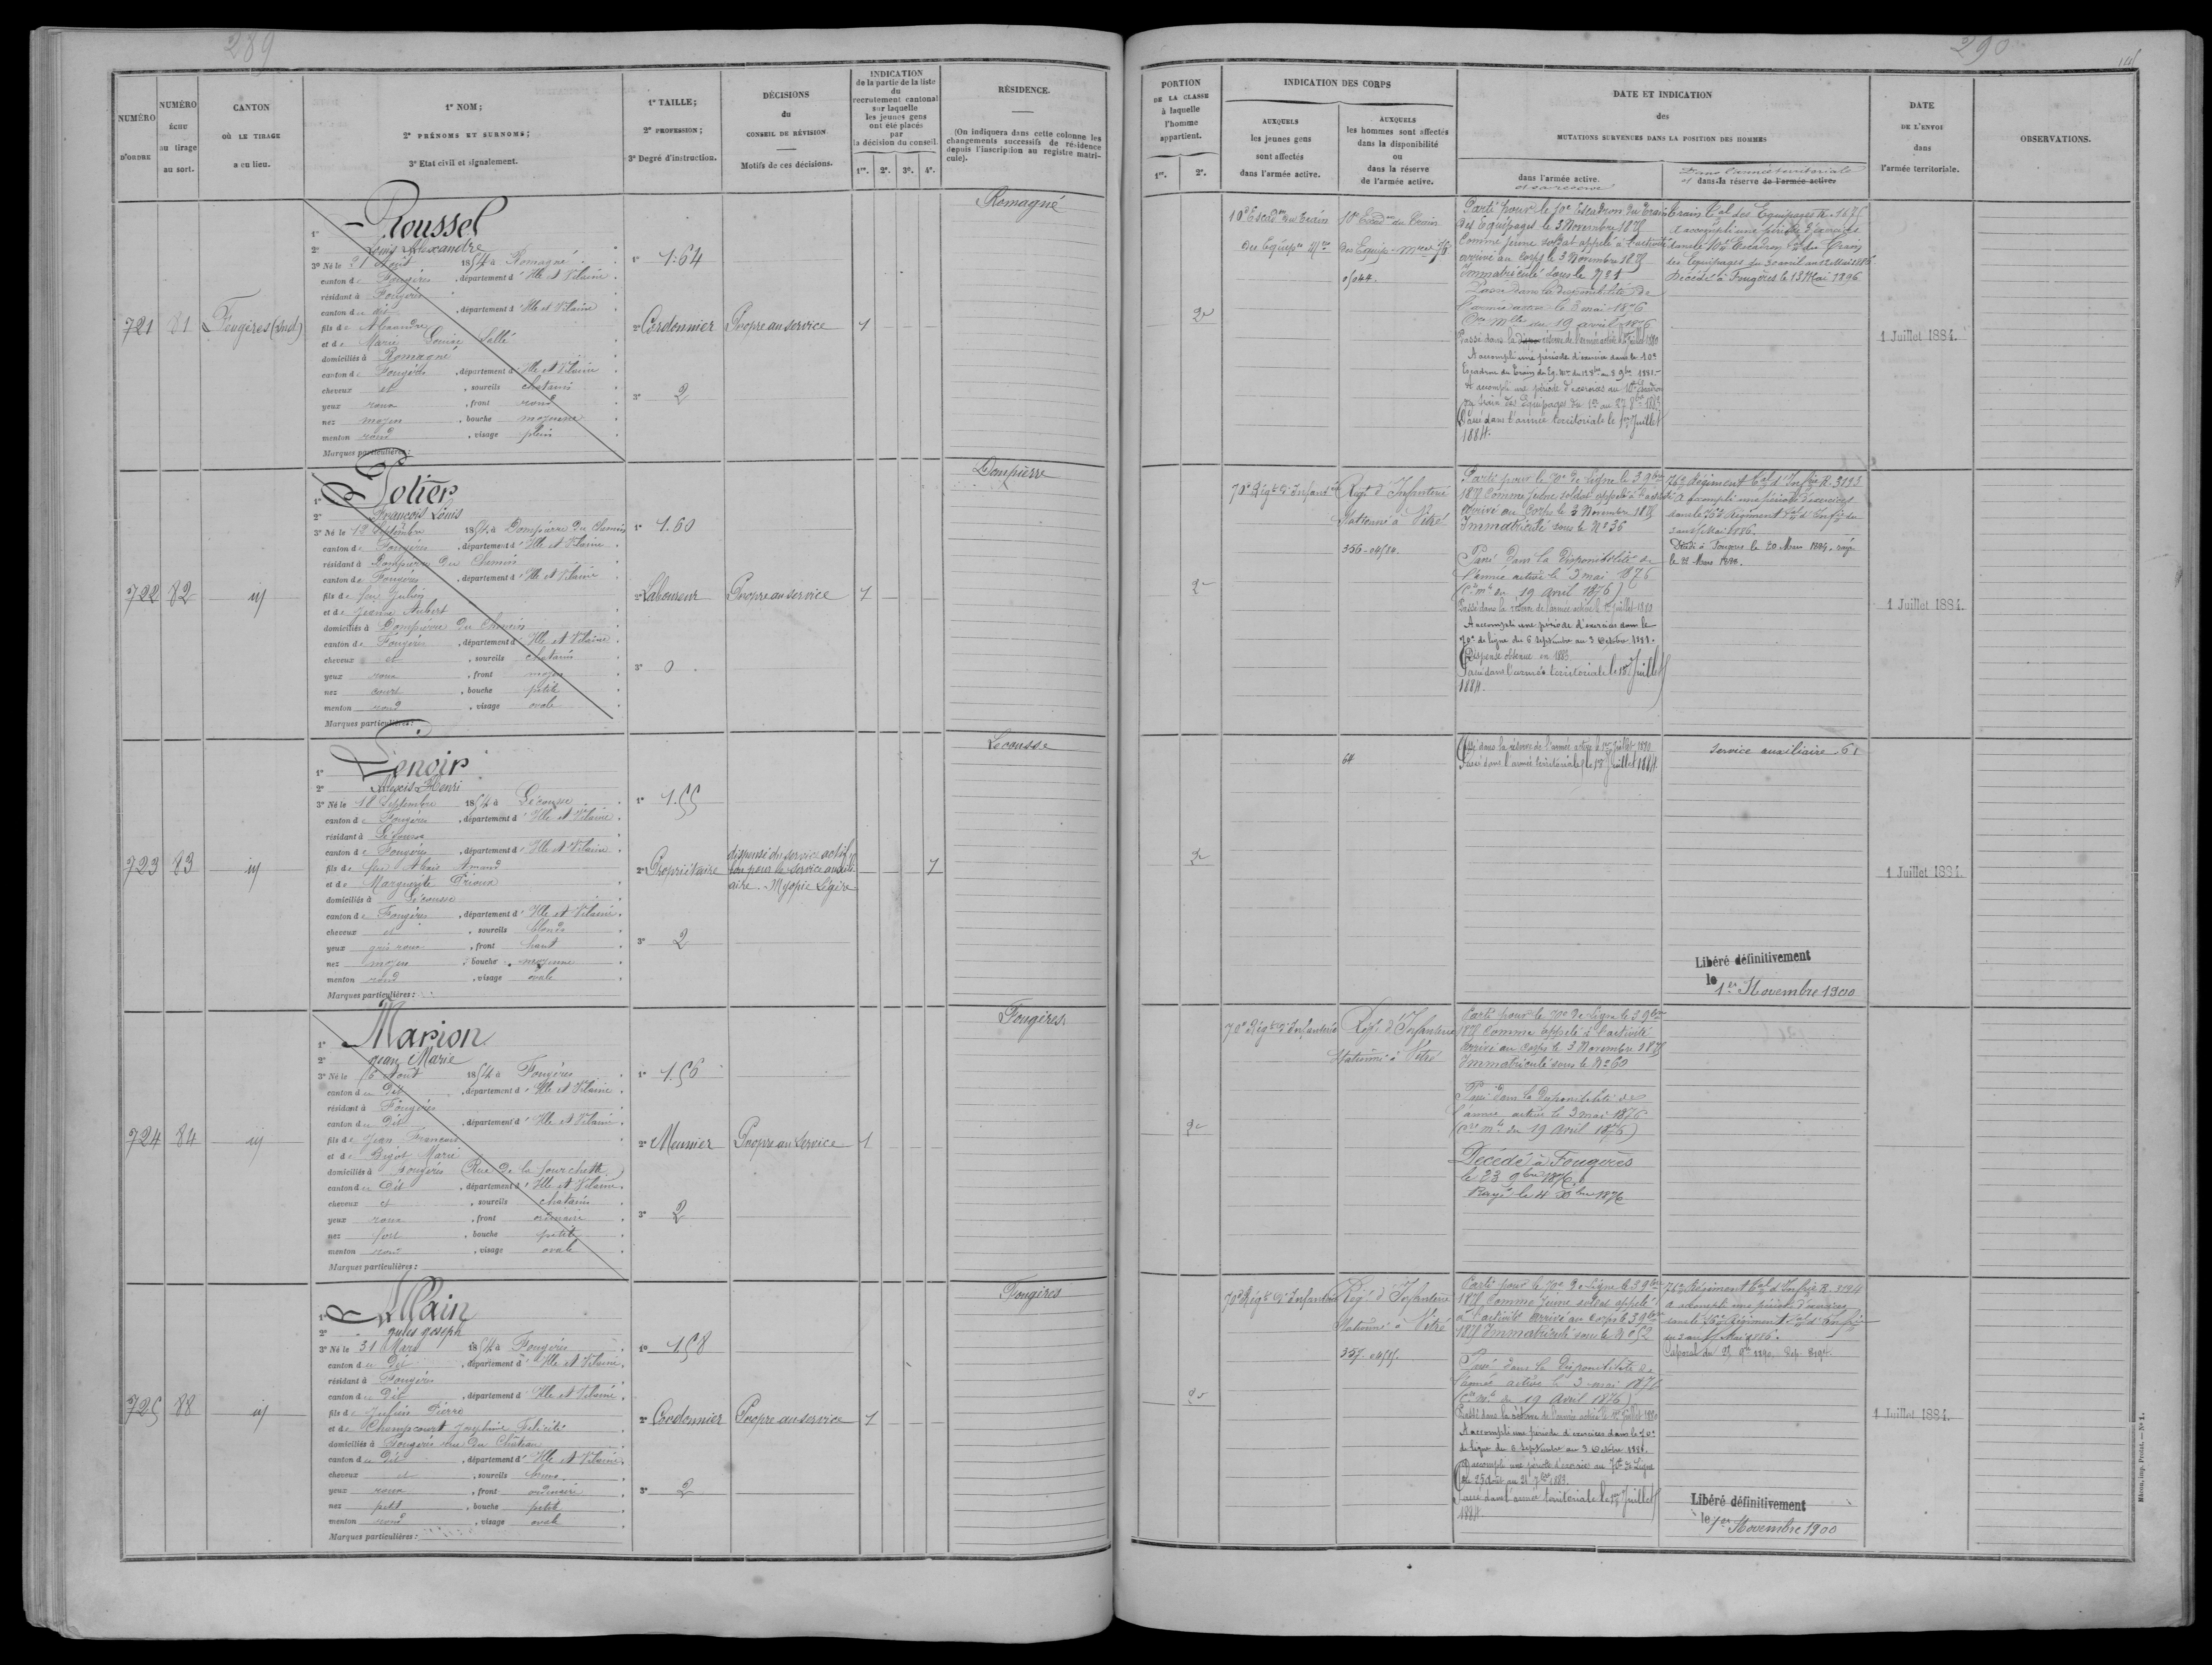 289
NUMÉRO D'ORDRE
NUMÉRO ÉCHU au tirage au sort.
CANTON OÙ LE TIRAGE a eu lieu.
1º NOM;
2º PRÉNOMS ET SURNOMS;
3º Etat civil et signalement.
1º TAILLE;
2º PROFESSION;
3º Degré d'instruction.
DÉCISIONS du CONSEIL DE RÉVISION
Motifs de ces décisions.
INDICATION
de la partie de la liste
du
recrutement cantonal
sur laquelle
les jeunes gens
ont été placés
par
la décision du conseil.
1re. 2e. 3e. 4e.
RÉSIDENCE.
(On indiquera dans cette colonne les
changements successifs de résidence
depuis l'inscription au registre matri-
cule).
721
81
Fougères (Sud)
1º Roussel
2º Louis Alexandre
3º Né le 21 Août 1854 à Romagné
canton de Fougères, département d'Ille et Vilaine
résidant à Fougères
canton du dit, département d'Ille et Vilaine
fils de Alexandre
et de Marie Louise Sallé
domiciliés à Romagné
canton de Fougères, département d'Ille et Vilaine
cheveux et, sourcils chatains
yeux roux, front rond
nez moyen, bouche moyenne
menton rond, visage plein
Marques particulières:
1º 1.64
2º Cordonnier
3º 2
Propre au service
1
Romagné
722
82
id
1º Potier
2º François Louis
3º Né le 12 Septembre 1854 à Dompierre du Chemin
canton de Fougères, département d'Ille et Vilaine
résidant à Dompierre du Chemin
canton de Fougères, département d'Ille et Vilaine
fils de feu Julien
et de Jeanne Aubert
domiciliés à Dompierre du Chemin
canton de Fougères, département d'Ille et Vilaine
cheveux et, sourcils chatains
yeux roux, front moyen
nez court, bouche petite
menton rond, visage ovale
Marques particulières:
1º 1.60
2º Laboureur
3º 0
Propre au service
1
Dompierre
723
83
id
1º Lenoir
2º Alexis Henri
3º Né le 18 Septembre 1854 à Lécousse
canton de Fougères, département d'Ille et Vilaine
résidant à Lécousse
canton de Fougères, département d'Ille et Vilaine
fils de feu Alexis Armand
et de Marguerite Prioux
domiciliés à Lécousse
canton de Fougères, département d'Ille et Vilaine
cheveux et, sourcils blonds
yeux gris roux, front haut
nez moyen, bouche moyenne
menton rond, visage ovale
Marques particulières:
1º 1.55
2º Propriétaire
3º 2
dispensé du service actif
bon pour le service auxili-
aire. Myopie légère
1
Lecousse
724
84
id
1º Marion
2º Jean Marie
3º Né le 6 Août 1854 à Fougères
canton du Dit, département d'Ille et Vilaine
résidant à Fougères
canton du Dit, département d'Ille et Vilaine
fils de Jean François
et de Bigot Marie
domiciliés à Fougères (Rue de la fourchette)
canton du Dit, département d'Ille et Vilaine
cheveux et, sourcils chatains
yeux roux, front ordinaire
nez fort, bouche petite
menton rond, visage ovale
Marques particulières:
1º 1.56
2º Meunier
3º 2
Propre au service
1
Fougères
725
88
id
1º Allain
2º Jules Joseph
3º Né le 31 Mars 1854 à Fougères
canton du Dit, département d'Ille et Vilaine
résidant à Fougères
canton du Dit, département d'Ille et Vilaine
fils de Julien Pierre
et de Champcourt Joséphine Félicité
domiciliés à Fougères rue du Château
canton du Dit, département d'Ille et Vilaine
cheveux et, sourcils bruns
yeux roux, front ordinaire
nez petit, bouche petite
menton rond, visage ovale
Marques particulières:
1º 1.58
2º Cordonnier
3º 2
Propre au service
1
Fougères
290
PORTION
DE LA CLASSE
à laquelle
l'homme
appartient.
1re. 2e.
INDICATION DES CORPS
AUXQUELS
les jeunes gens
sont affectés
dans l'armée active.
AUXQUELS
les hommes sont affectés
dans la disponibilité
ou
dans la réserve
de l'armée active.
DATE ET INDICATION
des
MUTATIONS SURVENUES DANS LA POSITION DES HOMMES
dans l'armée active.
et sa réserve
Dans l'armée territoriale
et dans la réserve de l'armée active.
DATE
DE L'ENVOI
dans
l'armée territoriale.
OBSERVATIONS.
2e
10e Escadon du train
des Equipes Mres
10e Escdon du Train
des Equip. Mres
0/044.
Parti pour le 10e Escadron du Train
des Equipages le 3 Novembre 1875
Comme jeune soldat appelé à l'activité
arrivé au Corps le 3 Novembre 1875
Immatriculé sous le
Passé dans la disponibilité de
l'armée active le 3 mai 1876
Cre Mlle du 19 avril 1876
Passé dans la réserve de l'armée active le 1er Juillet 1880
A accompli une période d'exercices dans le 10e
Escadron du Train des Eq. Mres du 8bre au 3 9bre 1881.
A accompli une période d'exercices au 10e Escadron
du train des Equipages du au 27 8bre 1883
Passé dans l'armée territoriale le 1er Juillet
1884.
train Tal des Equipages
A accompli une période d'exercices
dans le 10e Escadron Tal du Train
des Equipages du 30 avril au 12 Mai 1886
Décédé à Fougères le 13 Mai 1896
1 Juillet 1884.
2e
70e Régt d'Infanterie
Regt d'Infanterie
Stationné à Vitré
356-04/80.
Parti pour le 70e de Ligne le 3 9bre
1875 Comme jeune soldat appelé à l'activité
Arrivé au Corps le 3 Novembre 1875
Immatriculé sous le Nº 36
Passé dans la Disponibilité de
l'armée active le 3 mai 1876
(Cre Mlle du 19 Avril 1876)
Passé dans la réserve de l'armée active le 1er Juillet 1880
A accompli une période d'exercices dans le
70e de ligne du 6 Septembre au 3 Octobre 1881.
Dispense obtenue en 1883
Passé dans l'armée territoriale le 1er Juillet
1884.
76e Régiment Tal d'Infrie R. 3193
A accompli une période d'exercices
dans le 76e Régiment Tal d'Infie du
Mai 1886.
Décédé à Fougères le 20 Mars 1894. rayé
le 21 Mars 1894.
1 Juillet 1884.
2e
64
Passé dans la réserve de l'armée active le 1er Juillet 1880
Passé dans l'armée territoriale le 1er Juillet 1884.
Service auxiliaire 61
Libéré définitivement
le 1er Novembre 1900
1 Juillet 1884.
2e
70e Régt d'Infanterie
Regt d'Infanterie
Stationné à Vitré
Parti pour le 70e de Ligne le 3 9bre
1875 Comme appelé à l'activité
Arrivé au Corps le 3 Novembre 1875
Immatriculé sous le Nº 60
Passé dans la Disponibilité de
l'armée active le 3 mai 1876
(Cre Mlle du 19 Avril 1876)
Décédé à Fougères
le 23 9bre 1876.
Rayé le 4 Xbre 1876
2e
70e Régt d'Infanterie
Regt d'Infanterie
Stationné à Vitré
357-04/81.
Parti pour le 70e de Ligne le 3 9bre
1875 Comme jeune soldat appelé
à l'activité Arrivé au Corps le 3 9bre
1875 Immatriculé sous le Nº 52
Passé dans la Disponibilité de
l'armée active le 3 mai 1876
(Cre Mlle du 19 Avril 1876)
Passé dans la réserve de l'armée active le 1er Juillet 1880
A accompli une période d'exercices dans le 70e
de ligne du 6 Septembre au 3 Octobre 1881.
A accompli une période d'exercices au 70e de Ligne
du 25 Août au 21 7bre 1883.
Passé dans l'armée territoriale le 1er Juillet
1884.
76e Régiment Tal d'Infrie R. 3194
A accompli une période d'exercices
dans le 76e Régiment Tal d'Infie
du Mai 1886.
Caporal du 1890.
Libéré définitivement
le 1er Novembre 1900
1 Juillet 1884.
Mâcon, imp. Protat. — Nº 1.